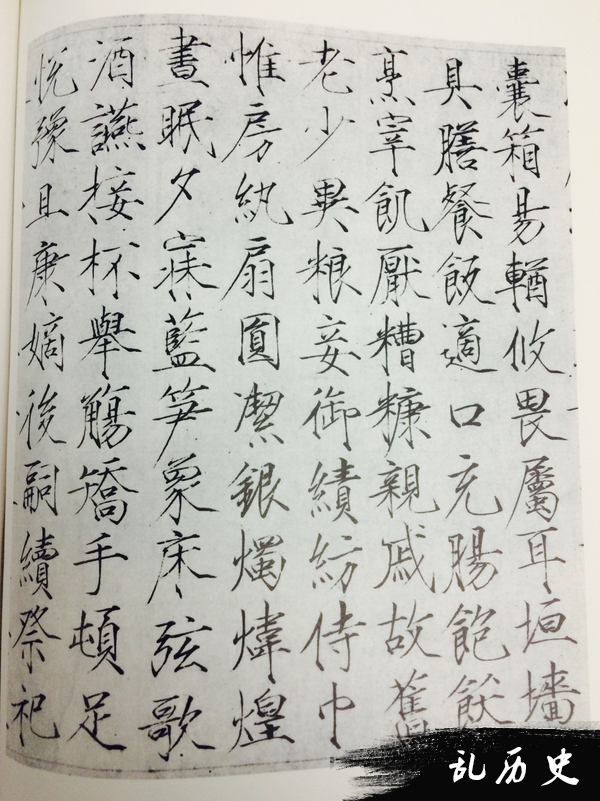 囊箱易輶攸畏屬耳垣墻
具膳餐飯適口充腸飽飫
烹宰飢厭糟糠親戚故舊
老少異粮妾御績紡侍巾
帷房紈扇圓潔銀燭煒煌
晝眠夕寐藍笋象床弦歌
酒讌接杯舉觴矯手頓足
悅豫且康嫡後嗣續祭祀
乱历史